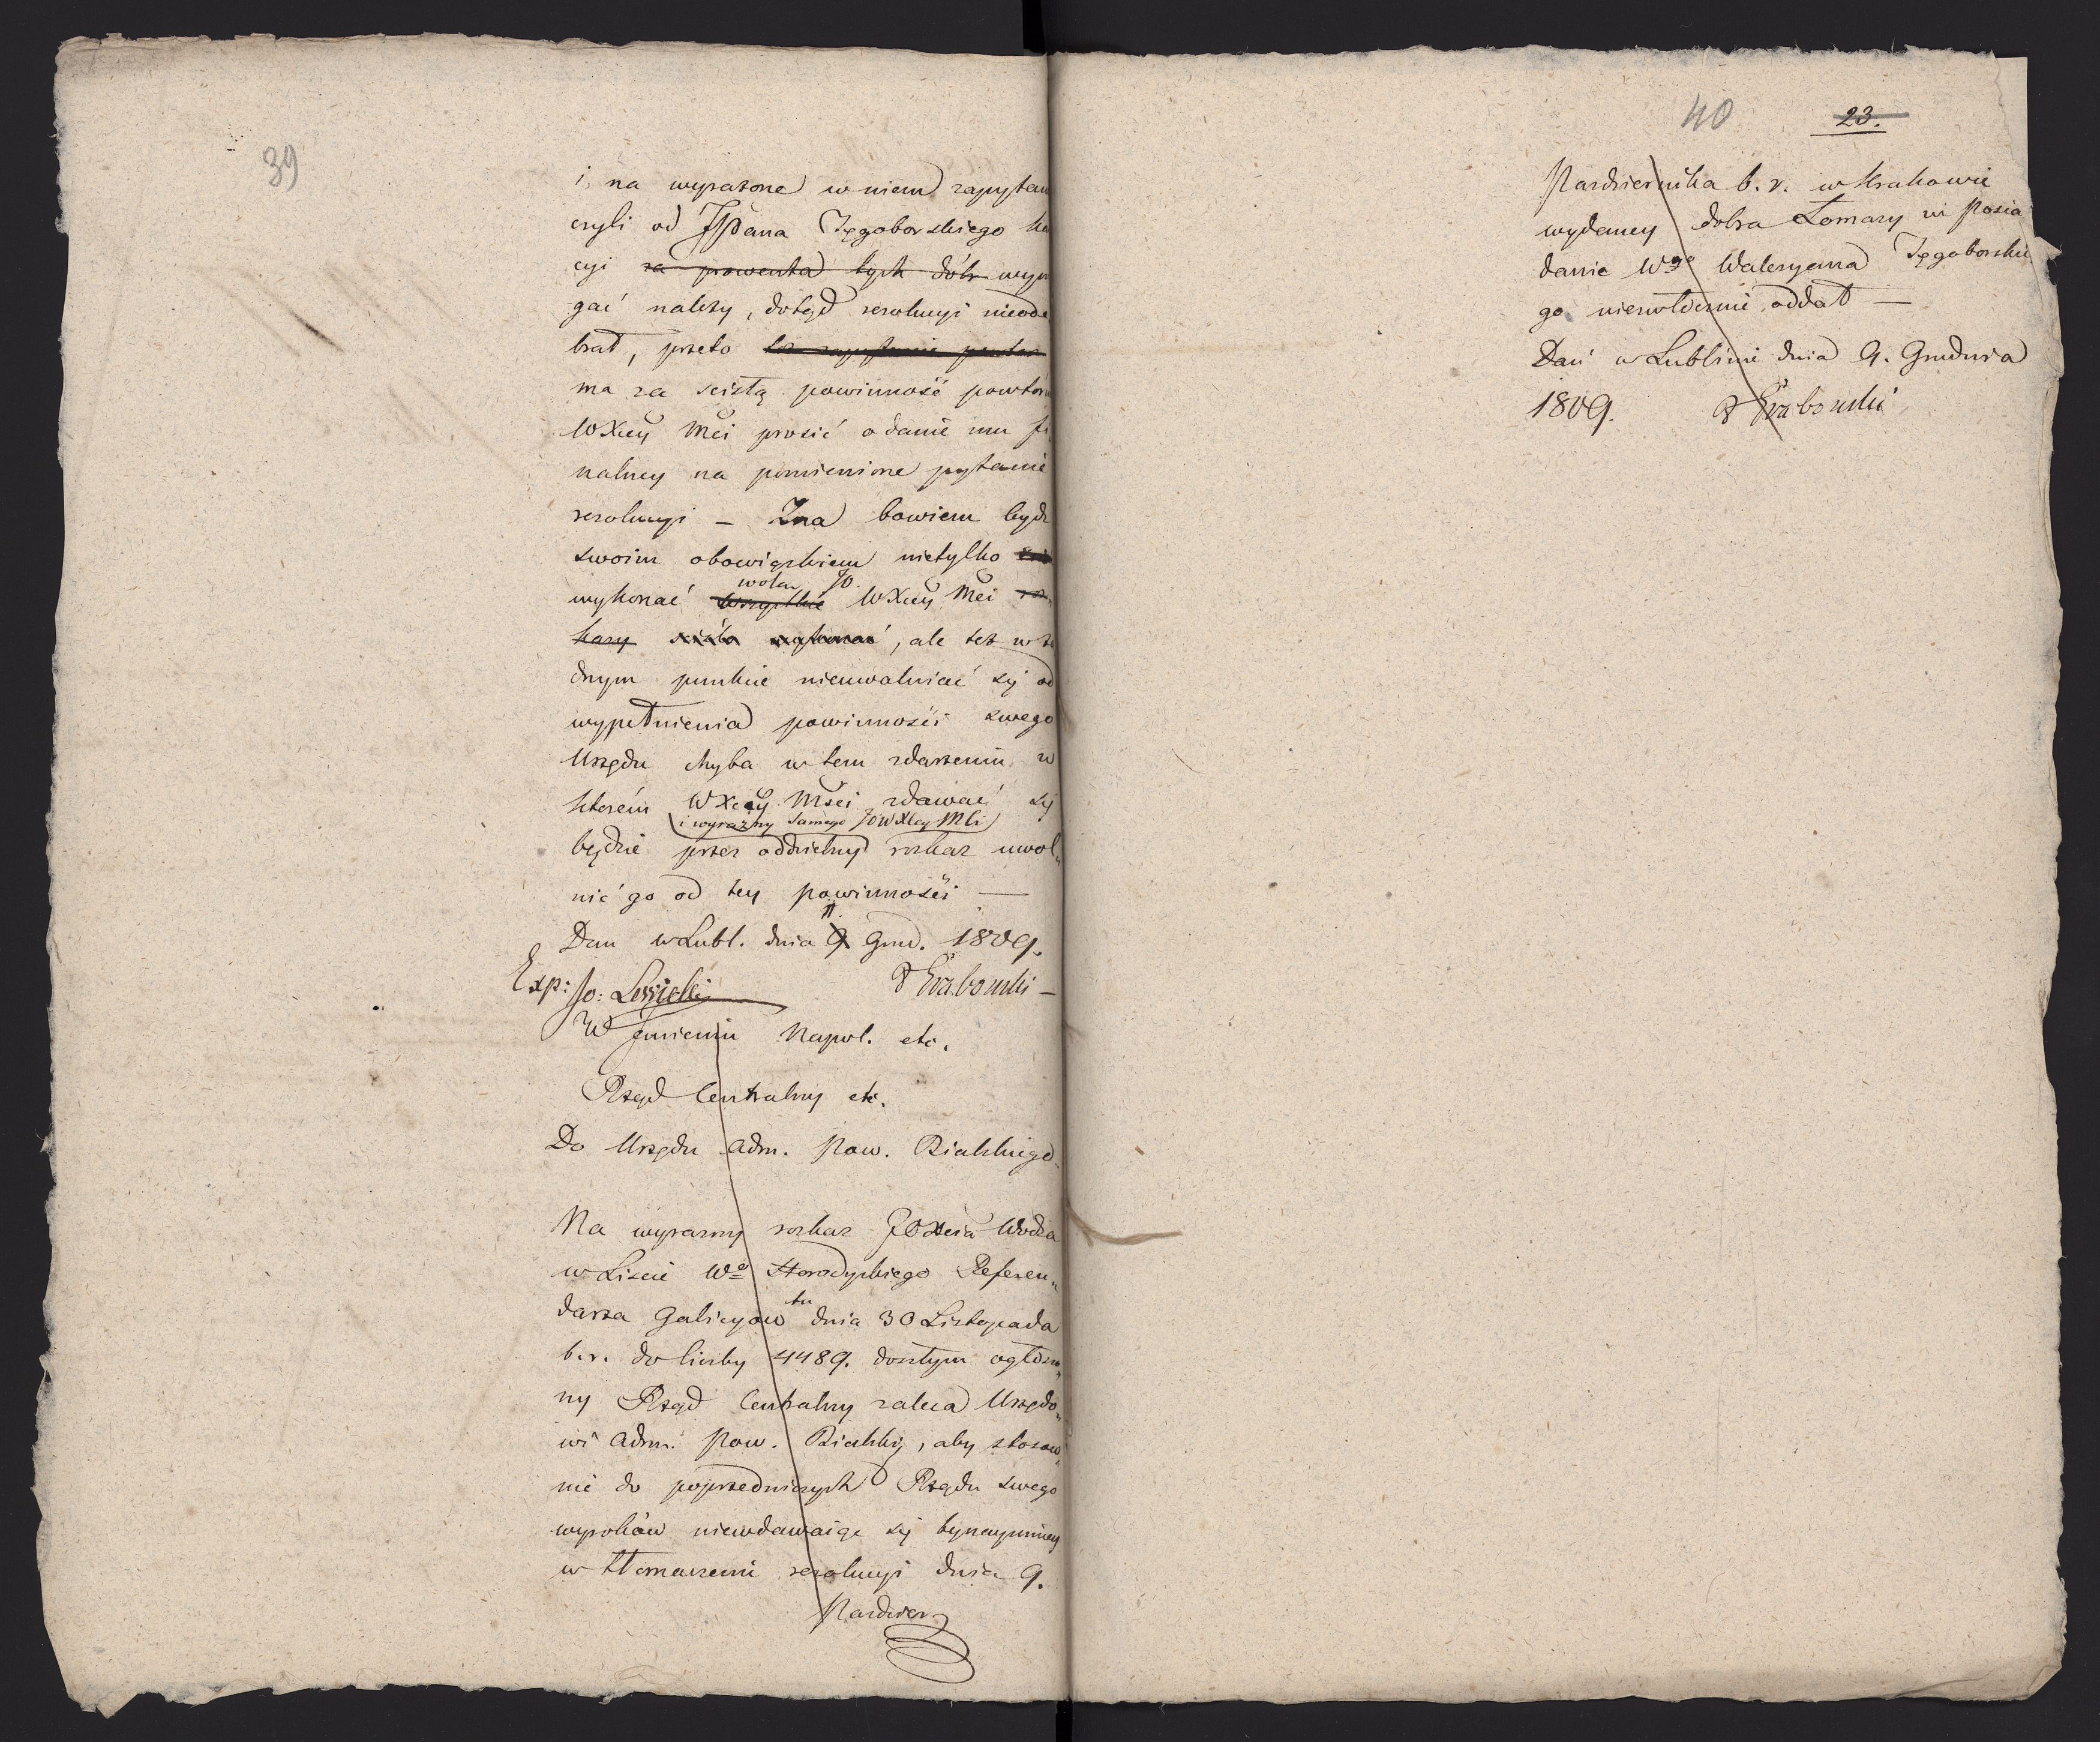 39
i, na wyrażone w niem zapytan
czyli od JPPana Tęgoborskiego ka
cyi za prowenta tych dóbr wym
gać należy, dotąd rezolucyi nieode
brał, przeto to zapytanie powtar
ma za scisłą powinność powtorn
WXcey Mci prosić o danie mu fi
nalney na pomienione pytanie
rezolucyi – Zna bowiem bydz
swoim obowiązkiem nietylko
wolą JO.
wykonać wszystkie WXcey Mci roz
kazy wykonać, ale też w ża
dnym punkcie nieuwalniać się od
wypełnienia powinności swego
Urzędu chyba w tem zdarzeniu, w
którém WXcey Mści zdawać się
i wyraźny samego JOWXcey Mci
będzie przez oddzielny rozkaz uwol„
nić go od tey powinności —
11.
Dan w Lubl. dnia 9 Grud. 1809.
Exp: Jo: Lewicki
Grabowski –
W Jmieniu Napol. etc.
Rząd Centralny etc.
Do Urzędu Adm. Pow. Bialskiego
Na wyrazny rozkaz JOXcia Wodza
w Liscie Wo Horodyskiego Referen„
tu
darza Galicyow dnia 30 Listopada
b.r. do liczby 4489. doszłym ogłoszo„
ny Rząd Centralny zaleca Urzędo„
wi Adm. Pow. Bialskiy, aby stosow„
nie do poprzedniczych Rządu swego
wyroków niewdawaiąc się bynaymniey
w tłomaczenie rezolucyi dnia 9.
Pazdzier
40
23.
Pazdziernika b. r. w Krakowie
wydaney dobra Łomazy w Posia
danie Wgo Waleryana Tęgoborskie
go niezwłocznie oddał —
Dań w Lublinie dnia 9. Grudnia
1809. Grabowski